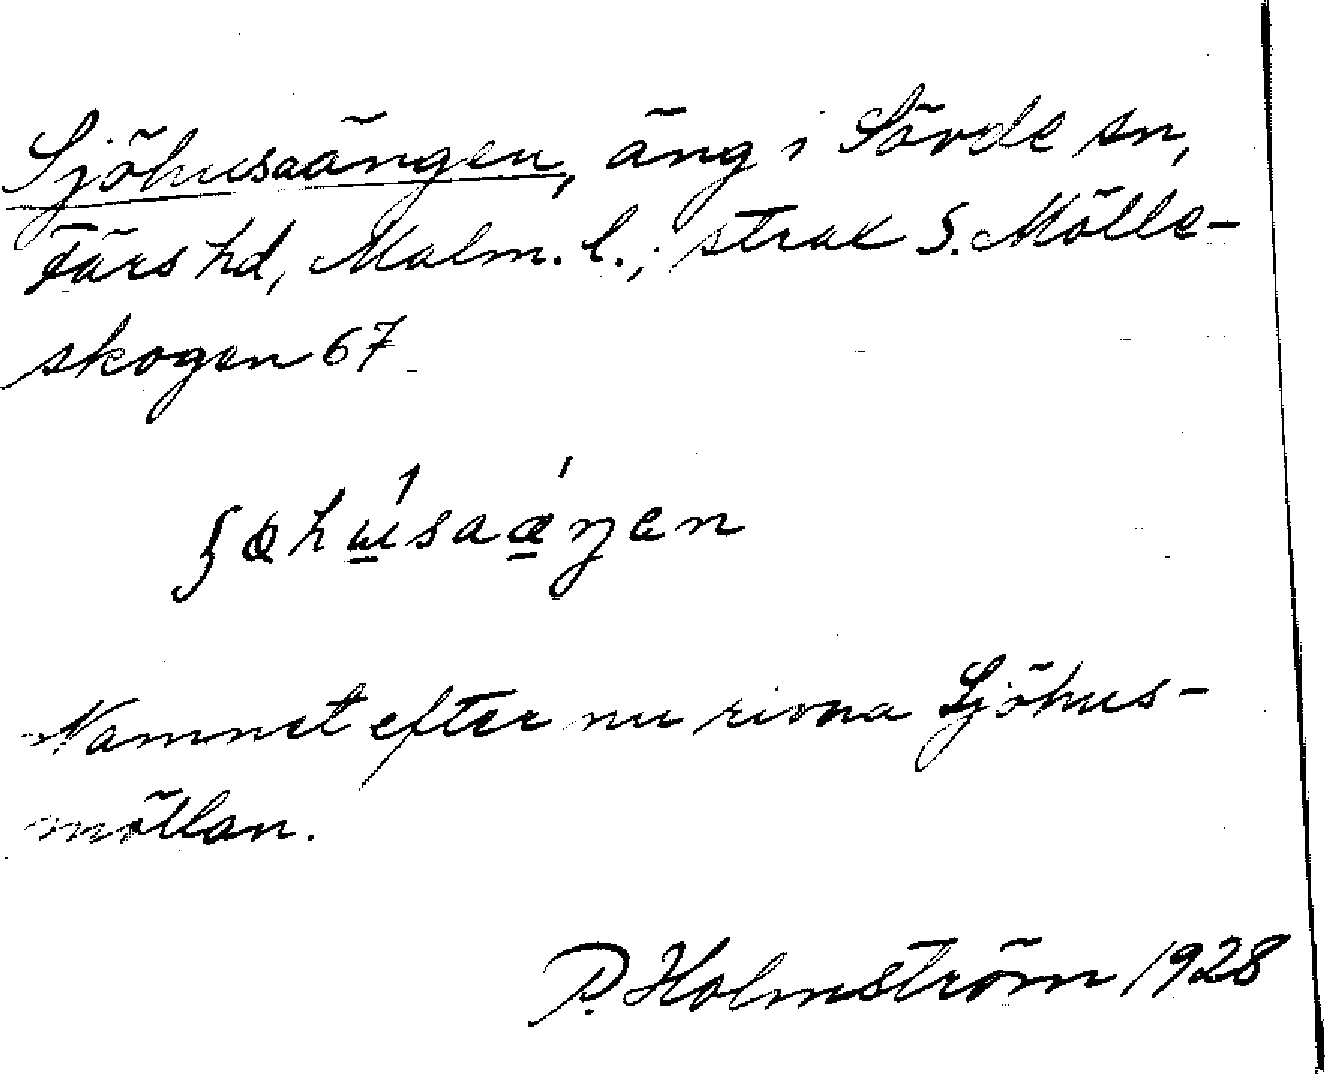 Sjöhusaängen, äng i Sövde sn,
Färs hd, Malm. l.; strax S. Mölle-
skogen 67
ʃøhu̲ı́saǽ̲ŋen
Namnet efter nu rivna Sjöhus-
möllan.
P. Holmström 1928